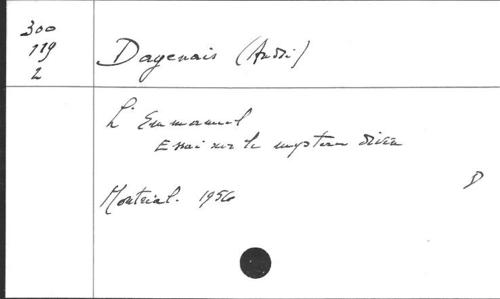 300
119
2
Dagenais (André)
L'Emmanuel
Essai sur le mystère divin
D
Montréal. 1956